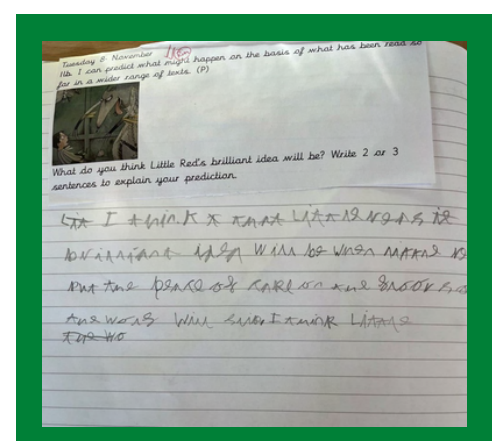 Tuesday 8 November
I can predict what might happen on the basis of what has been read so
far in a wider range of texts. (P)
What do you think Little Red's brilliant idea will be? Write 2 or 3
sentences to explain your prediction.
I think that Little Reds
brilliant idea will be when
put the peace of cake on the floor so
the wolf will I think Little
the wo